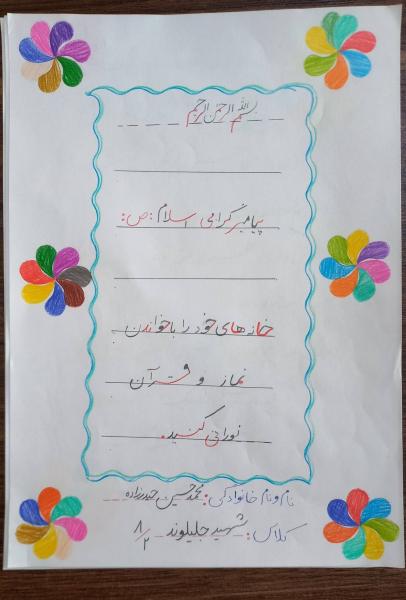 بسم الله الرحمن الرحیم
پیامبر گرامی اسلام (ص):
خانه های خود را با خواندن
نماز و قرآن
نورانی کنید.
نام و نام خانوادگی: محمد حسین حیدرزاده
کلاس: شهید جلیلوند ۸/۲